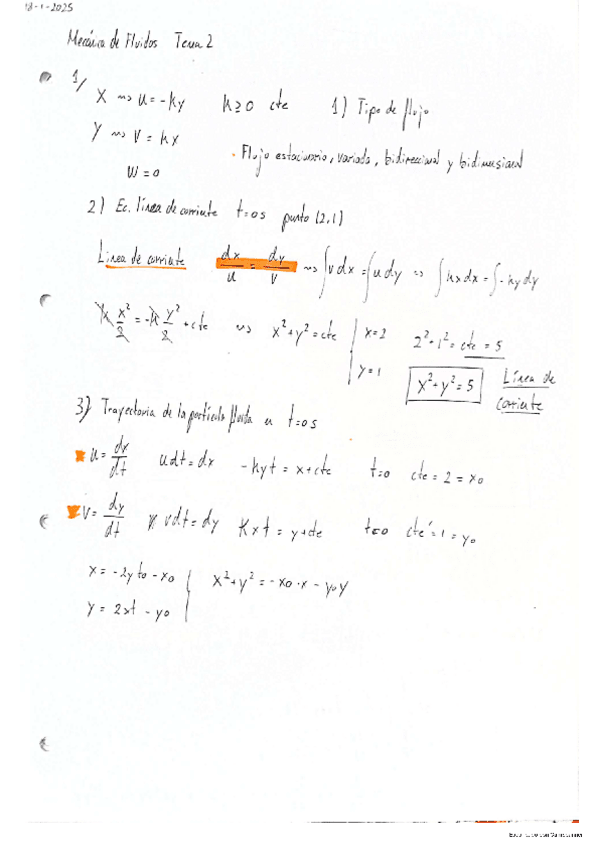 18-1-2025
Mecánica de Fluidos Tema 2
1/
X ⇝ u = -ky k ≥ 0 cte 1) Tipo de flujo
Y ⇝ V = kx · Flujo estacionario, variado, bidireccional y bidimensional
W = 0
2) Ec. línea de corriente t=0s punto (2,1)
Línea de corriente dx/u = dy/v ⇝ ∫vdx = ∫udy ⇝ ∫kxdx = ∫-kydy
k x²/2 = -k y²/2 + cte ⇝ x²+y² = cte { x=2 2²+1² = cte = 5
y=1 x²+y² = 5 Línea de corriente
3) Trayectoria de la partícula fluida en t=0s
u = dx/dt udt = dx -kyt = x+cte t=0 cte = 2 = x0
V = dy/dt vdt = dy Kxt = y+cte t=0 cte' = 1 = y0
x = -2yt0 - x0 x²+y² = -x0·x - y0y
y = 2xt - y0